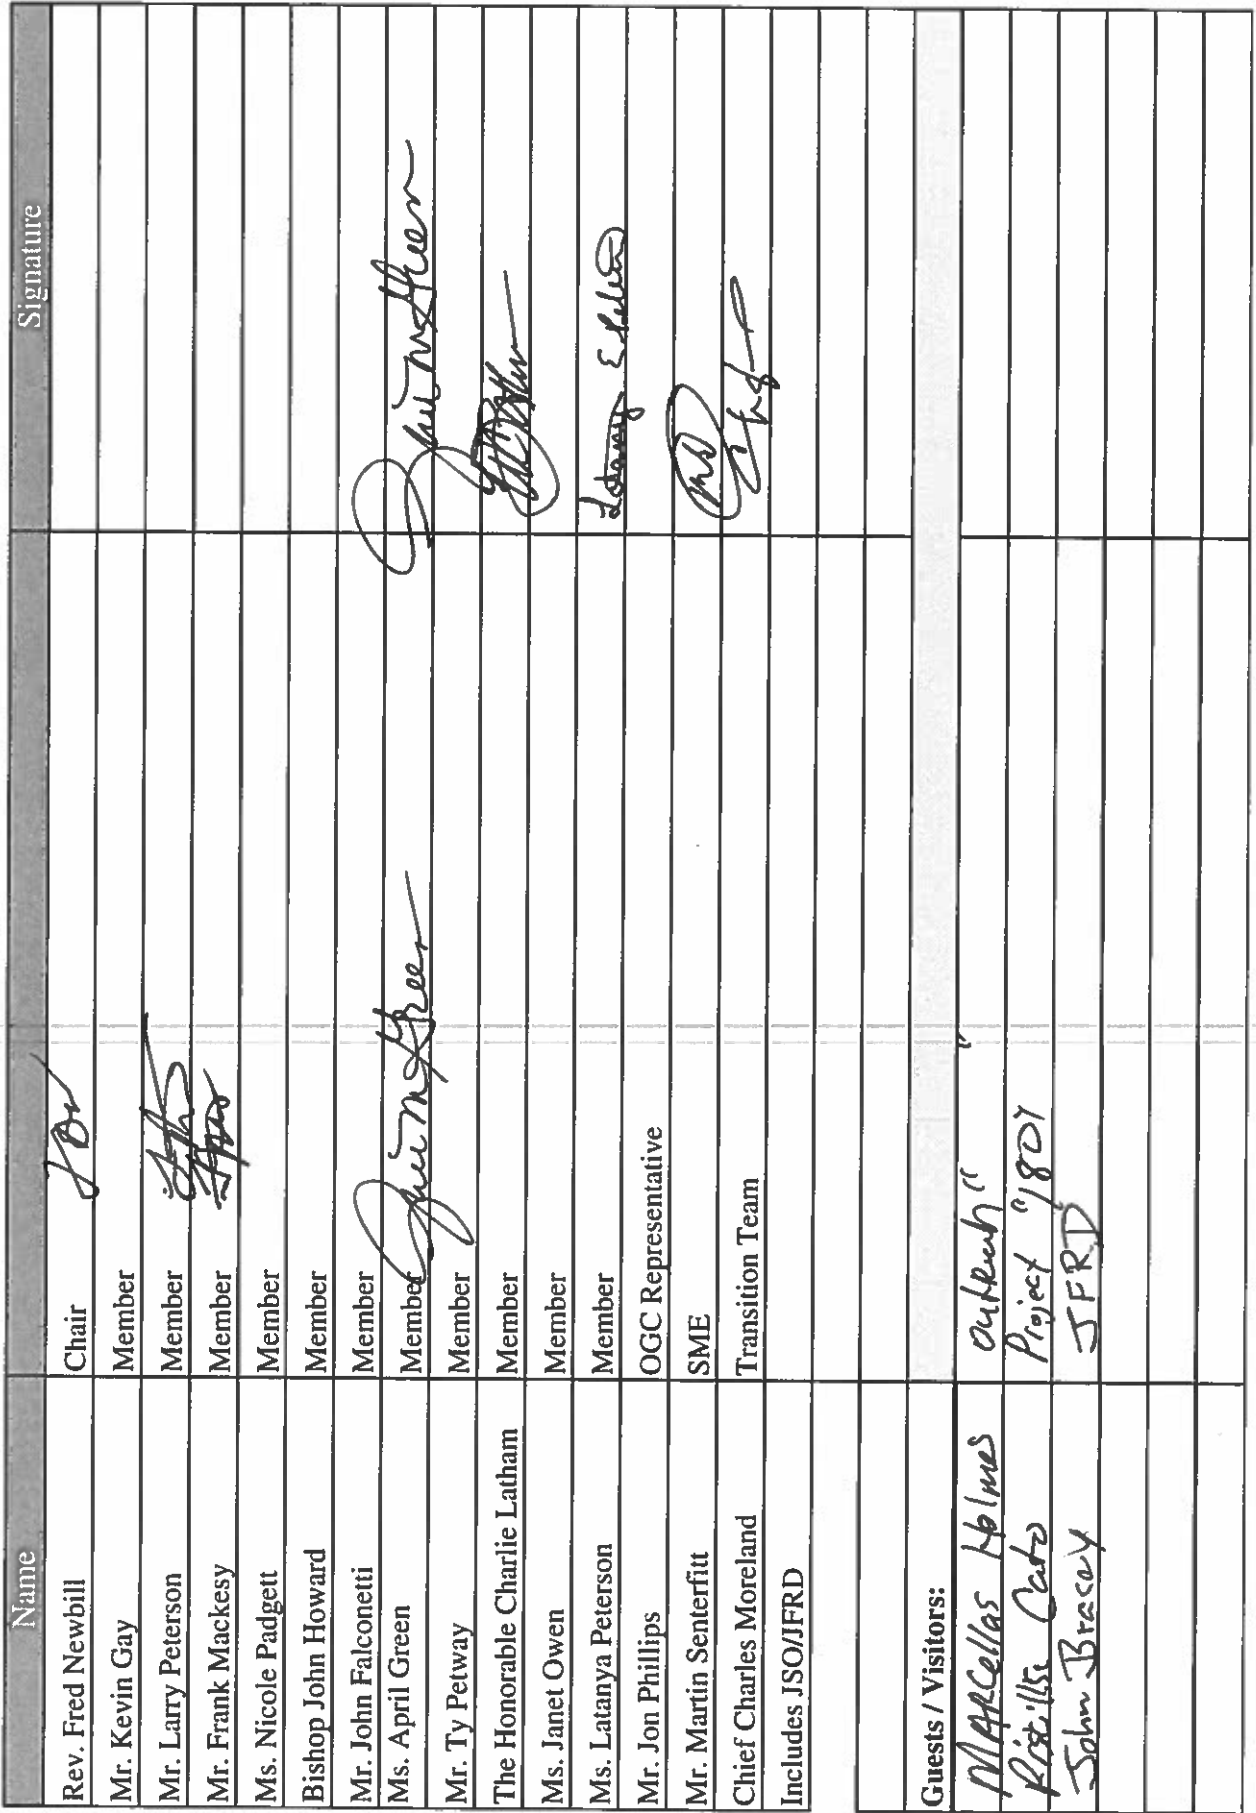 Name Signature
Rev. Fred Newbill Chair
Mr. Kevin Gay Member
Mr. Larry Peterson Member
Mr. Frank Mackesy Member
Ms. Nicole Padgett Member
Bishop John Howard Member
Mr. John Falconetti Member
Ms. April Green Member
Mr. Ty Petway Member
The Honorable Charlie Latham Member
Ms. Janet Owen Member
Ms. Latanya Peterson Member
Mr. Jon Phillips OGC Representative
Mr. Martin Senterfitt SME
Chief Charles Moreland Transition Team
Includes JSO/JFRD
Guests / Visitors:
MARCellas Holmes
Project
John Bracey JFRD